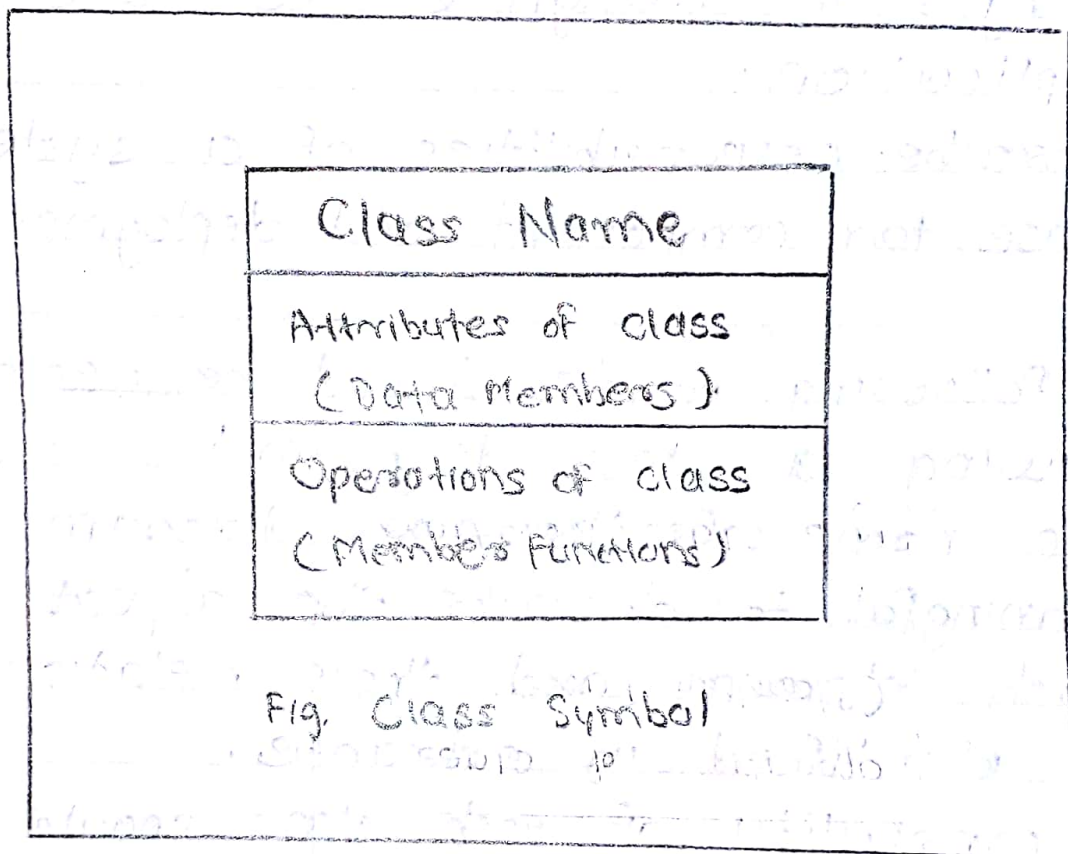 Class Name
Attributes of class
(Data Members)
Operations of class
(Member Functions)
Fig. Class Symbol